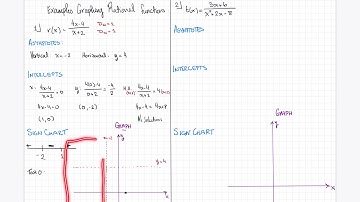 Examples Graphing Rational Functions
1) r(x) = 4x-4 / x+2
Dn = 1
Dd = 1
ASYMPTOTES
Vertical: x = -2 Horizontal: y = 4
INTERCEPTS
x: 4x-4 / x+2 = 0 y: 4(0)-4 / 0+2 = -4 / 2 H.A. 4x-4 / x+2 = 4
4x-4=0 (0,-2) 4x-4 = 4x+8
(1,0) No Solutions
SIGN CHART
GRAPH
-2 1
y=4
Test 0:
x
y
2) t(x) = 3x+6 / x²+2x-8
ASYMPTOTES
INTERCEPTS
SIGN CHART
GRAPH
x